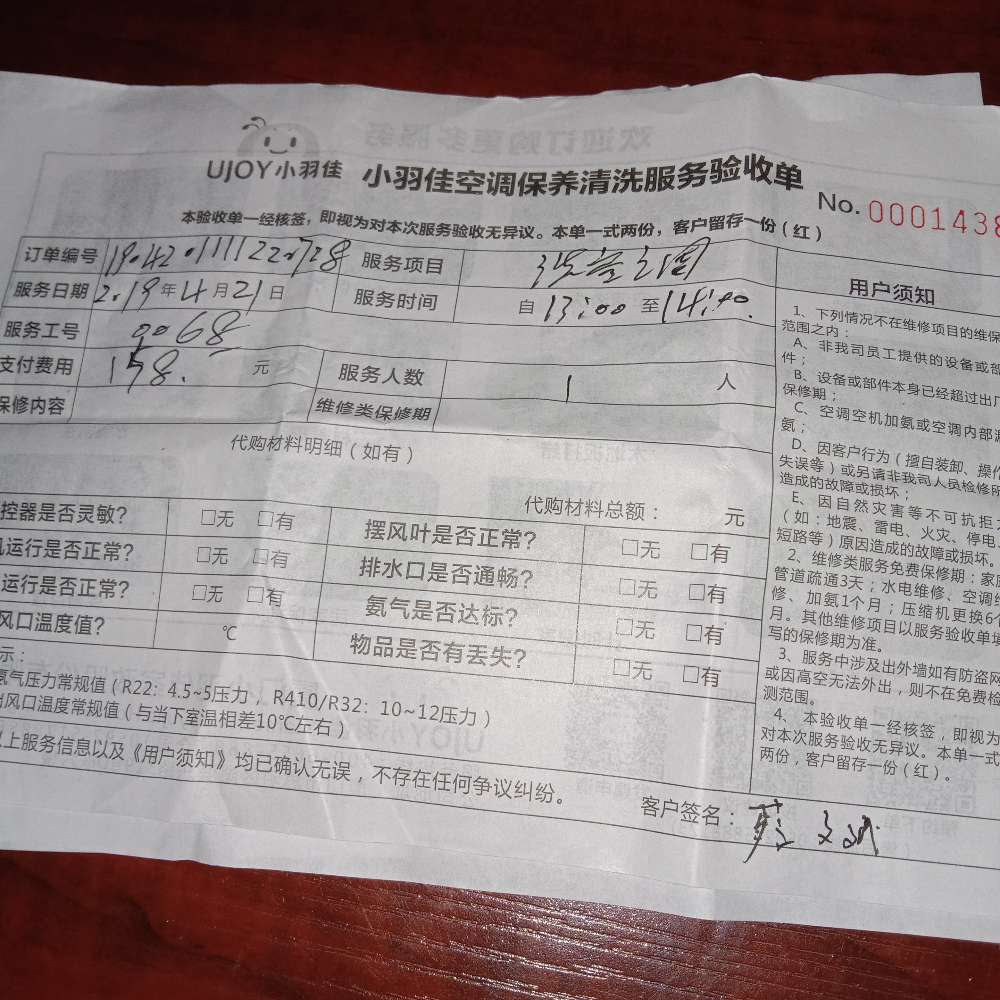 UJOY小羽佳
小羽佳空调保养清洗服务验收单
No. 0001438
本验收单一经核签，即视为对本次服务验收无异议。本单一式两份，客户留存一份（红）
订单编号 服务项目
服务日期 2019年4月21日 服务时间 自13:00至14:00
服务工号 9068
支付费用 158. 元 服务人数 1 人
保修内容 维修类保修期
代购材料明细（如有）
代购材料总额： 元
控器是否灵敏? □无 □有 摆风叶是否正常? □无 □有
机运行是否正常? □无 □有 排水口是否通畅? □无 □有
运行是否正常? □无 □有 氨气是否达标? □无 □有
风口温度值? ℃ 物品是否有丢失? □无 □有
示：
氨气压力常规值（R22：4.5~5压力，R410/R32：10~12压力）
出风口温度常规值（与当下室温相差10℃左右）
以上服务信息以及《用户须知》均已确认无误，不存在任何争议纠纷。
客户签名：
用户须知
1、下列情况不在维修项目的维保
范围之内：
A、非我司员工提供的设备或部
件；
B、设备或部件本身已经超过出厂
保修期；
C、空调空机加氨或空调内部漏
氨；
D、因客户行为（擅自装卸、操作
失误等）或另请非我司人员检修所
造成的故障或损坏；
E、因自然灾害等不可抗拒
（如：地震、雷电、火灾、停电、
短路等）原因造成的故障或损坏。
2、维修类服务免费保修期：家庭
管道疏通3天；水电维修、空调维
修、加氨1个月；压缩机更换6个
月。其他维修项目以服务验收单填
写的保修期为准。
3、服务中涉及出外墙如有防盗网
或因高空无法外出，则不在免费检
测范围。
4、本验收单一经核签，即视为
对本次服务验收无异议。本单一式
两份，客户留存一份（红）。